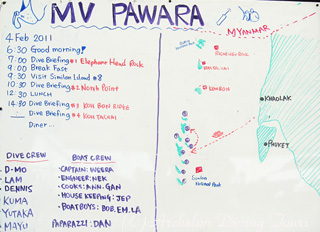 MV PAWARA
4 Feb 2011
6:30 Good morning!
7:00 Dive Briefing #1 Elephant Head Rock
9:00 Break Fast
9:30 Visit Similan Island #8
10:30 Dive Briefing #2 North Point
12:30 LUNCH
14:30 Dive Briefing #3 KOH BON RIDGE
Dive Briefing #4 KOH TACHAI
Diner ...
DIVE CREW
D-MO
LAM
DENNIS
KUMA
YUTAKA
MAYU
BOAT CREW
CAPTAIN: WEERA
ENGINEER: NEK
COOKS: ANN. GAN
HOUSE KEEPING: JEP
BOATBOYS: BOB. EM. LA
PAPARAZZI: DAN
MYANMAR
RICHELIEU ROCK
KOH TACHAI
KOH BON
KHAOLAK
PHUKET
Similan
National Park